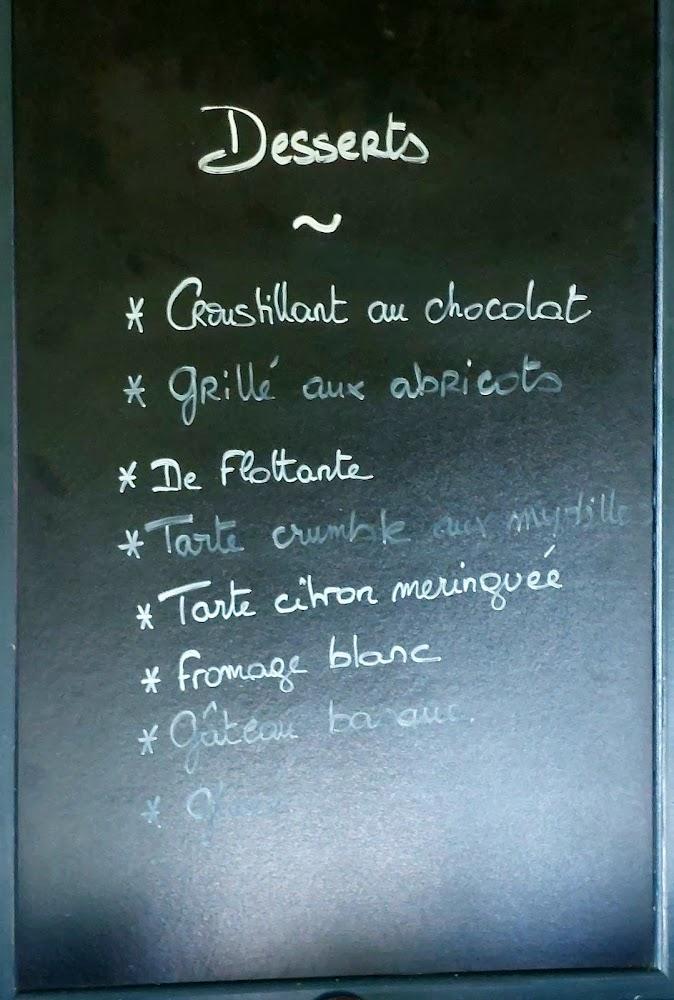 Desserts
~
* Croustillant au chocolat
* Grillé aux abricots
* De Flottante
* Tarte crumble aux myrtille
* Tarte citron meringuéé
* Fromage blanc
* Gâteau
*